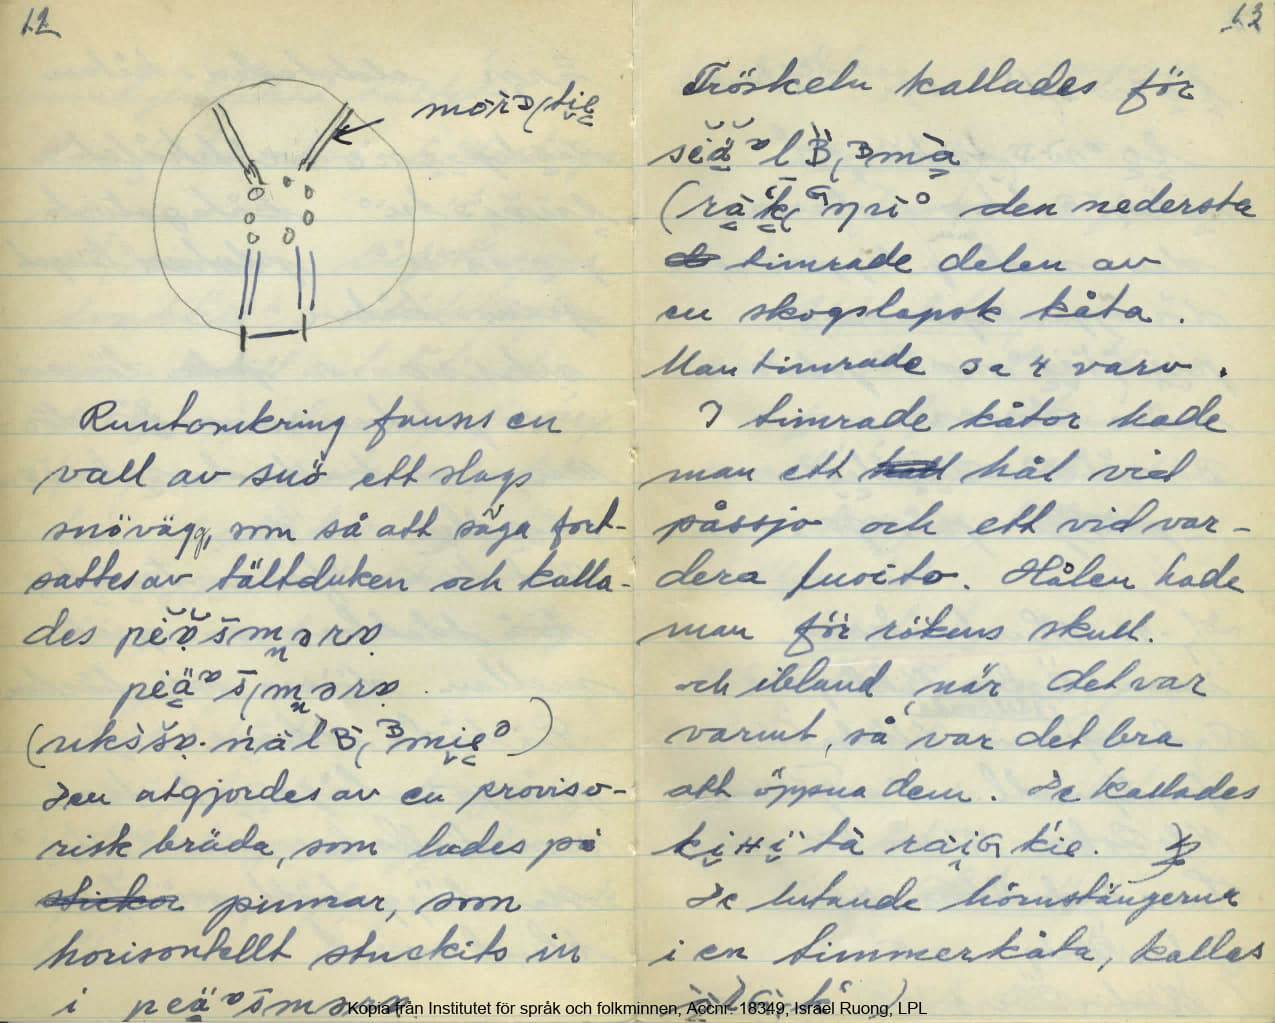 12
Runtomkring fanns en
vall av snö ett slags
snövägg, som så att säga fort-
sattes av tältduken och kalla-
des
Den utgjordes av en proviso-
risk bräda, som lades på
sticka pinnar, som
horisontellt stuckits in
i
13
Tröskeln kallades för
den nedersta
timrade delen av
en skogslapsk kåta.
Man timrade 3 a 4 varv.
I timrade kåtor hade
man ett hål vid
påssjo och ett vid var-
dera luoito. Hålen hade
man för rökens skull.
och ibland, när det var
varmt, så var det bra
att öppna dem. De kallades
De lutande hörnstängerna
i en timmerkåta, kallas
Kopia från Institutet för språk och folkminnen, Accnr. 18349, Israel Ruong, LPL